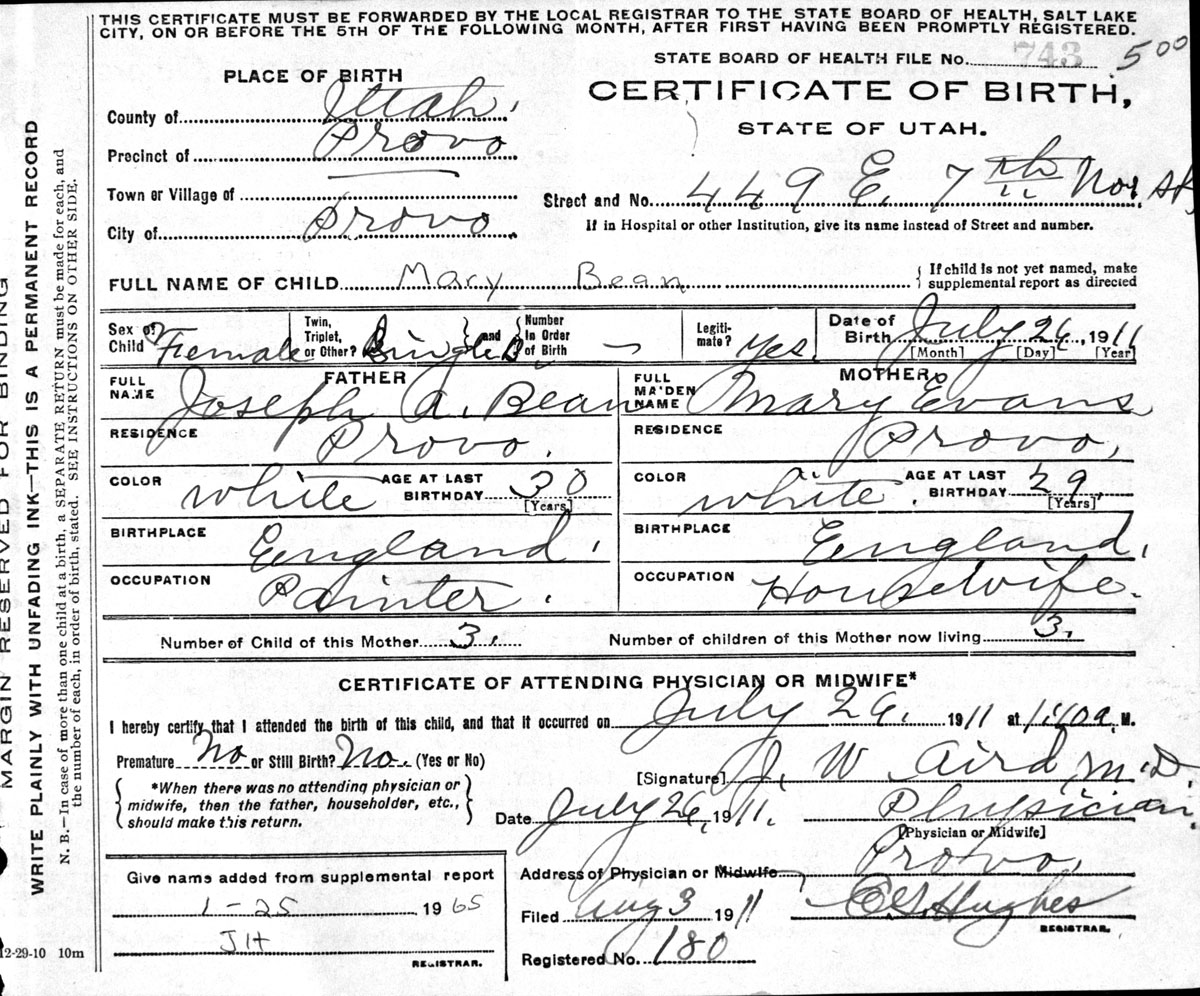 THIS CERTIFICATE MUST BE FORWARDED BY THE LOCAL REGISTRAR TO THE STATE BOARD OF HEALTH, SALT LAKE
CITY, ON OR BEFORE THE 5TH OF THE FOLLOWING MONTH, AFTER FIRST HAVING BEEN PROMPTLY REGISTERED.
STATE BOARD OF HEALTH FILE No. 743 500
PLACE OF BIRTH
CERTIFICATE OF BIRTH,
STATE OF UTAH.
County of Utah.
Precinct of Provo
Town or Village of
City of Provo
Street and No. 449 E. 7th Nor. St,
If in Hospital or other Institution, give its name instead of Street and number.
FULL NAME OF CHILD Mary Bean
If child is not yet named, make
supplemental report as directed
Sex of Child Female
Twin, Triplet, or Other? Single
and Number in Order of Birth —
Legiti-mate? Yes.
Date of Birth July 26, 1911
[Month] [Day] [Year]
FATHER
FULL NAME Joseph A. Bean
RESIDENCE Provo.
COLOR white AGE AT LAST BIRTHDAY 30
[Years]
BIRTHPLACE England.
OCCUPATION Painter.
MOTHER
FULL MAIDEN NAME Mary Evans
RESIDENCE Provo,
COLOR white. AGE AT LAST BIRTHDAY 29,
[Years]
BIRTHPLACE England,
OCCUPATION Housewife.
Number of Child of this Mother 3.
Number of children of this Mother now living 3.
CERTIFICATE OF ATTENDING PHYSICIAN OR MIDWIFE*
I hereby certify that I attended the birth of this child, and that it occurred on July 26, 1911 at 1:40 a. M.
Premature No or Still Birth? No. (Yes or No)
*When there was no attending physician or
midwife, then the father, householder, etc.,
should make this return.
[Signature] J. W. Aird M.D.
Date July 26, 1911. Physician.
[Physician or Midwife]
Address of Physician or Midwife Provo,
Filed Aug 3 1911
Hughes
REGISTRAR.
Registered No. 180
Give name added from supplemental report
1-25 1965
JH
REGISTRAR.
12-29-10 10m
MARGIN RESERVED FOR BINDING
WRITE PLAINLY WITH UNFADING INK—THIS IS A PERMANENT RECORD
N. B.—In case of more than one child at a birth, a SEPARATE RETURN must be made for each, and
the number of each, in order of birth, stated. SEE INSTRUCTIONS ON OTHER SIDE.